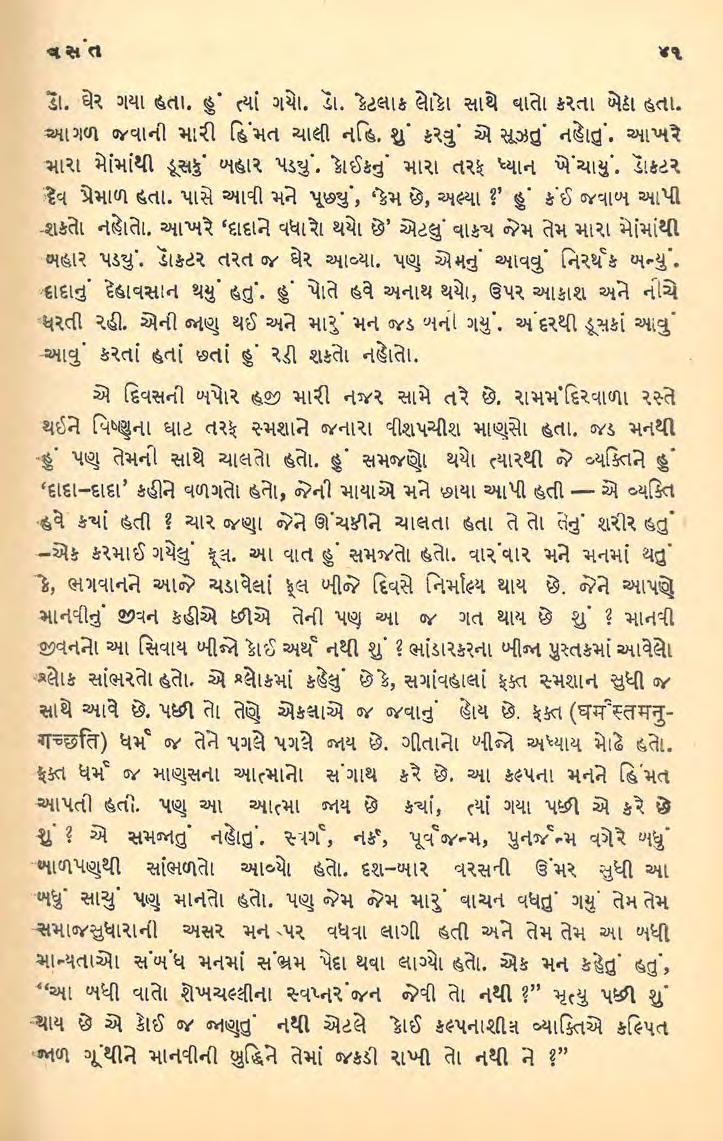 વસંત ૪૧
ડૉ. ઘેર ગયા હતા. હું ત્યાં ગયો. ડૉ. કેટલાક લોકો સાથે વાતો કરતા બેઠા હતા.
આગળ જવાની મારી હિંમત ચાલી નહિ. શું કરવું એ સૂઝતું નહોતું. આખરે
મારા મોંમાંથી ડૂસકું બહાર પડ્યું. કોઈકનું મારા તરફ ધ્યાન ખેંચાયું. ડૉક્ટર
દેવ પ્રેમાળ હતા. પાસે આવી મને પૂછ્યું, ‘કેમ છે, અલ્યા ?’ હું કંઈ જવાબ આપી
શકતો નહોતો. આખરે ‘દાદાને વધારો થયો છે’ એટલું વાક્ય જેમ તેમ મારા મોંમાંથી
બહાર પડ્યું. ડૉક્ટર તરત જ ઘેર આવ્યા. પણ એમનું આવવું નિરર્થક બન્યું.
દાદાનું દેહાવસાન થયું હતું. હું પોતે હવે અનાથ થયો, ઉપર આકાશ અને નીચે
ધરતી રહી. એની જાણ થઈ અને મારું મન જડ બની ગયું. અંદરથી ડૂસકાં આવું
આવું કરતાં હતાં છતાં હું રડી શકતો નહોતો.
એ દિવસની બપોર હજી મારી નજર સામે તરે છે. રામમંદિરવાળા રસ્તે
થઈને વિષ્ણુના ઘાટ તરફ સ્મશાને જનારા વીશપચીશ માણસો હતા. જડ મનથી
હું પણ તેમની સાથે ચાલતો હતો. હું સમજણો થયો ત્યારથી જે વ્યક્તિને હું
‘દાદા–દાદા’ કહીને વળગતો હતો, જેની માયાએ મને છાયા આપી હતી — એ વ્યક્તિ
હવે ક્યાં હતી ? ચાર જણા જેને ઊંચકીને ચાલતા હતા તે તો તેનું શરીર હતું
–એક કરમાઈ ગયેલું ફૂલ. આ વાત હું સમજતો હતો. વારંવાર મને મનમાં થતું
કે, ભગવાનને આજે ચડાવેલાં ફૂલ બીજે દિવસે નિર્માલ્ય થાય છે. જેને આપણે
માનવીનું જીવન કહીએ છીએ તેની પણ આ જ ગત થાય છે શું ? માનવી
જીવનનો આ સિવાય બીજો કોઈ અર્થ નથી શું ? ભાંડારકરના બીજા પુસ્તકમાં આવેલો
શ્લોક સાંભરતો હતો. એ શ્લોકમાં કહેલું છે કે, સગાંવહાલાં ફક્ત સ્મશાન સુધી જ
સાથે આવે છે. પછી તો તેણે એકલાએ જ જવાનું હોય છે. ફક્ત (घर्मस्तमनु-
गच्छति) ધર્મ જ તેને પગલે પગલે જાય છે. ગીતાનો બીજો અધ્યાય મોઢે હતો.
ફક્ત ધર્મ જ માણસના આત્માનો સંગાથ કરે છે. આ કલ્પના મનને હિંમત
આપતી હતી. પણ આ આત્મા જાય છે ક્યાં, ત્યાં ગયા પછી એ કરે છે
શું ? એ સમજાતું નહોતું. સ્વર્ગ, નર્ક, પૂર્વજન્મ, પુનર્જન્મ વગેરે બધું
બાળપણથી સાંભળતો આવ્યો હતો. દશ–બાર વરસની ઉંમર સુધી આ
બધું સાચું પણ માનતો હતો. પણ જેમ જેમ મારું વાચન વધતું ગયું તેમ તેમ
સમાજસુધારાની અસર મન પર વધવા લાગી હતી અને તેમ તેમ આ બધી
માન્યતાઓ સંબંધ મનમાં સંભ્રમ પેદા થવા લાગ્યો હતો. એક મન કહેતું હતું,
“આ બધી વાતો શેખચલ્લીના સ્વપ્નરંજન જેવી તો નથી ?” મૃત્યુ પછી શું
થાય છે એ કોઈ જ જાણતું નથી એટલે કોઈ કલ્પનાશીલ વ્યક્તિએ કલ્પિત
જાળ ગૂંથીને માનવીની બુદ્ધિને તેમાં જકડી રાખી તો નથી ને ?”